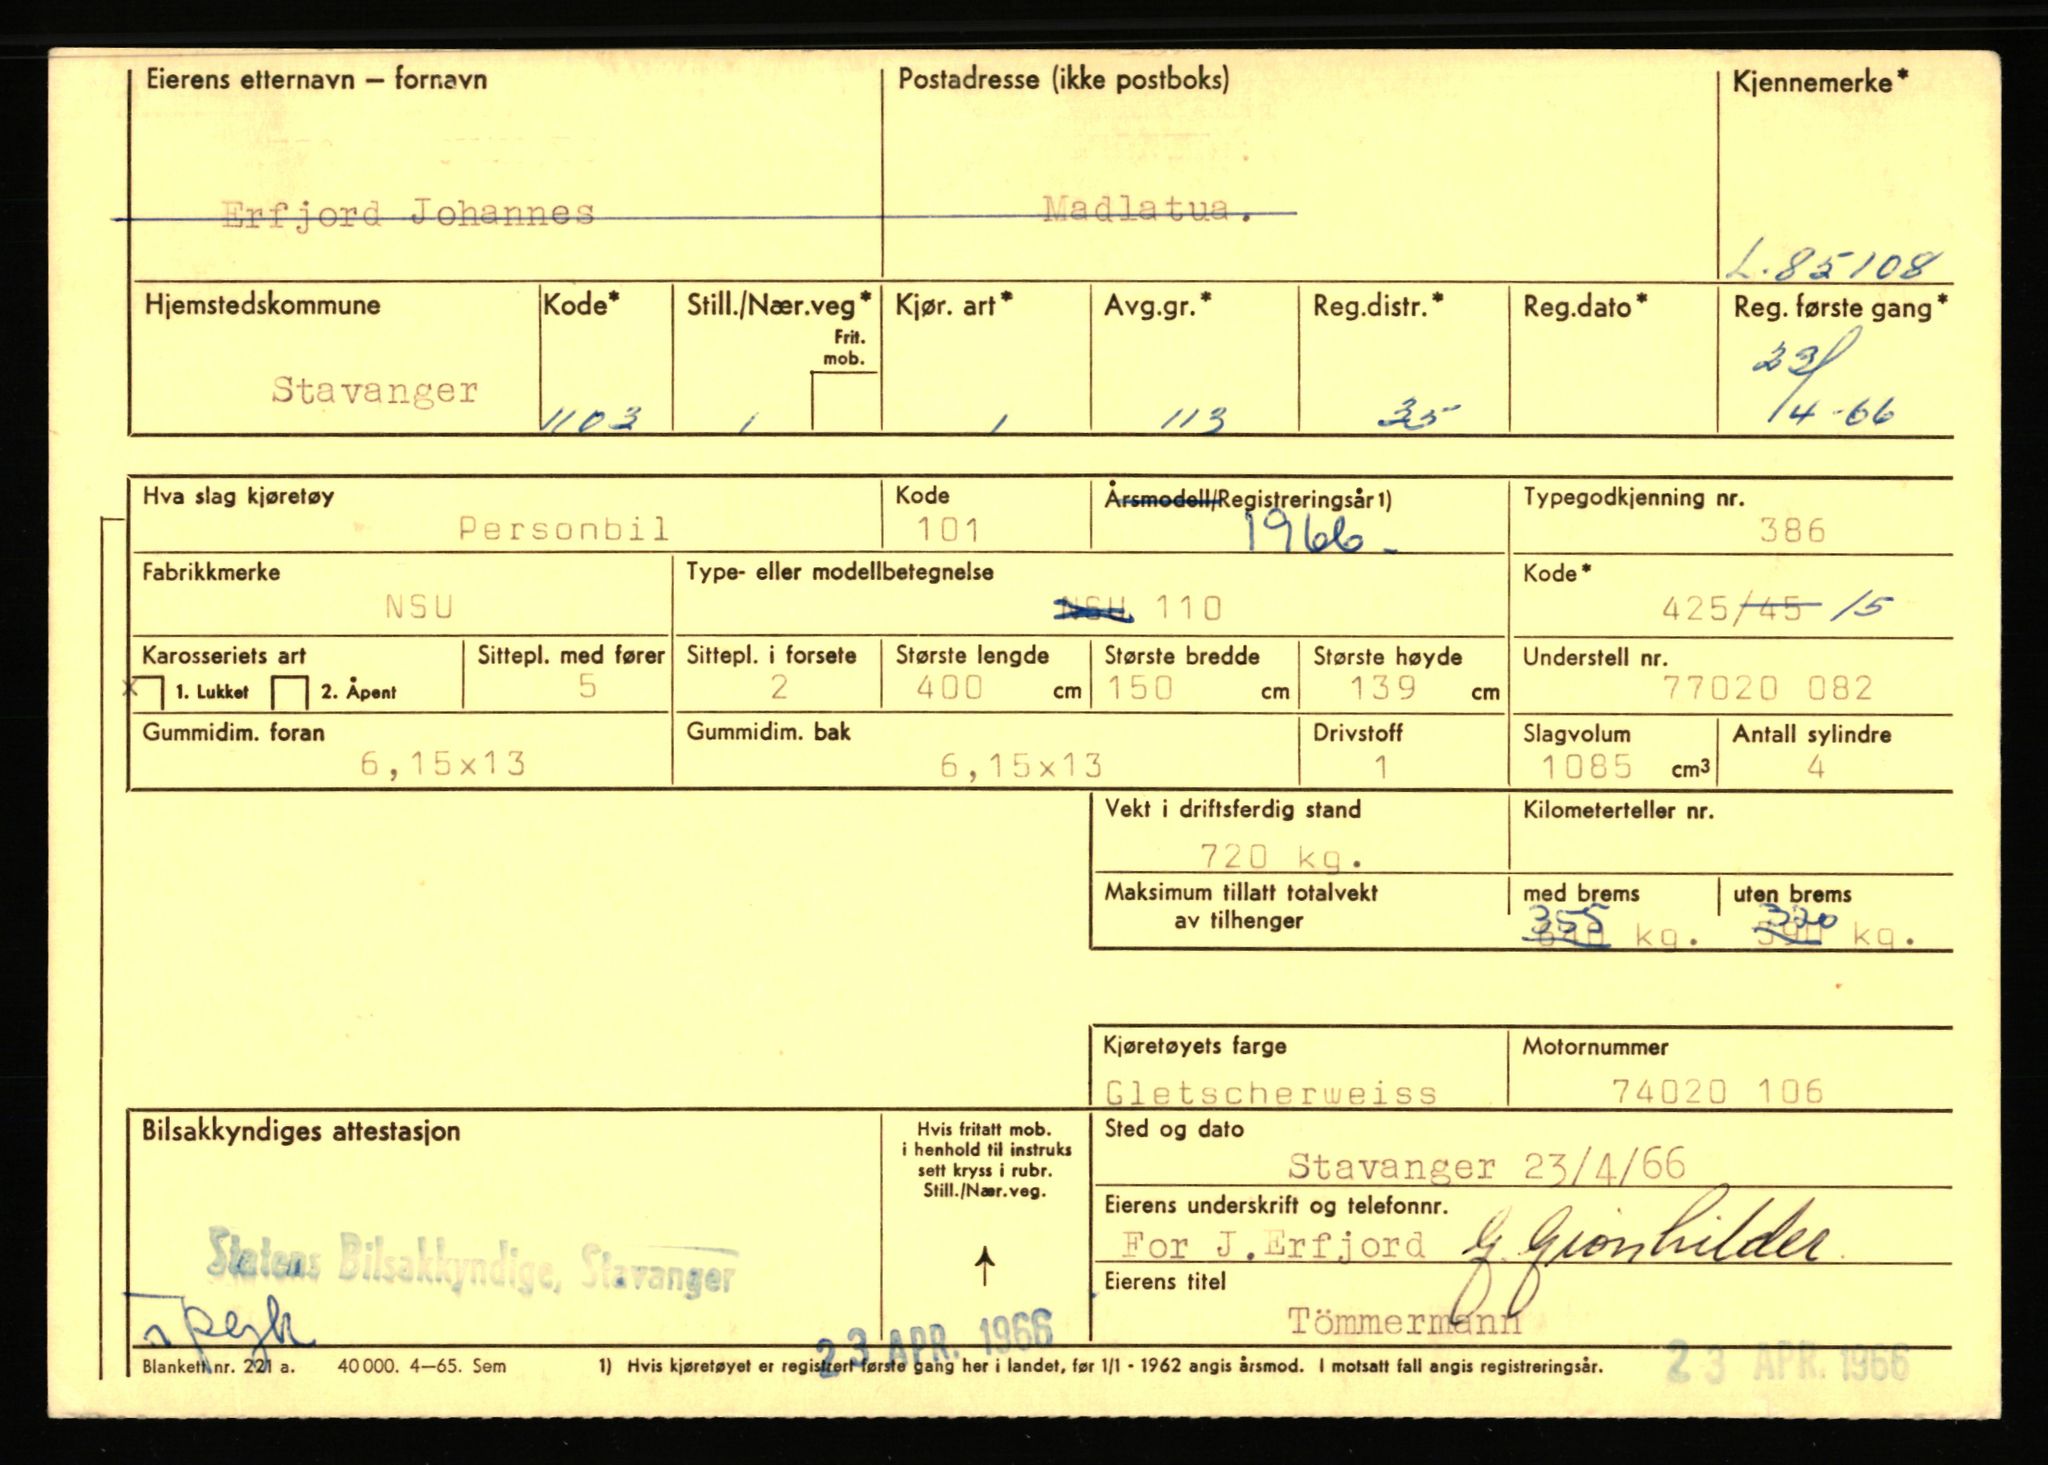 Eierens etternavn – fornavn Postadresse (ikke postboks) Kjennemerke*
Erfjord Johannes Madlatua.
L.85108
Hjemstedskommune Kode* Still./Nær.veg* Kjør. art* Avg.gr.* Reg.distr.* Reg.dato* Reg. første gang*
Frit.
mob.
23/
Stavanger 1103 1 1 113 35 4-66
Hva slag kjøretøy Kode Årsmodell/Registreringsår 1) Typegodkjenning nr.
Personbil 101 1966 386
Fabrikkmerke Type- eller modellbetegnelse Kode*
NSU NSU 110 425/45 15
Karosseriets art Sittepl. med fører Sittepl. i forsete Største lengde Største bredde Største høyde Understell nr.
x 1. Lukket 2. Åpent 5 2 400 cm 150 cm 139 cm 77020 082
Gummidim. foran Gummidim. bak Drivstoff Slagvolum Antall sylindre
6,15x13 6,15x13 1 1085 cm3 4
Vekt i driftsferdig stand Kilometerteller nr.
720 kg.
Maksimum tillatt totalvekt med brems uten brems
av tilhenger 355 kg. 330 kg.
Kjøretøyets farge Motornummer
Gletscherweiss 74020 106
Bilsakkyndiges attestasjon Hvis fritatt mob. Sted og dato
i henhold til instruks
sett kryss i rubr.
Still./Nær.veg.
Stavanger 23/4/66
Eierens underskrift og telefonnr.
For J.Erfjord
Statens Bilsakkyndige, Stavanger
Eierens titel
Tömmermann
23 APR. 1966
Blankett nr. 221 a. 40 000. 4–65. Sem 1) Hvis kjøretøyet er registrert første gang her i landet, før 1/1 - 1962 angis årsmod. I motsatt fall angis registreringsår.
23 APR. 1966